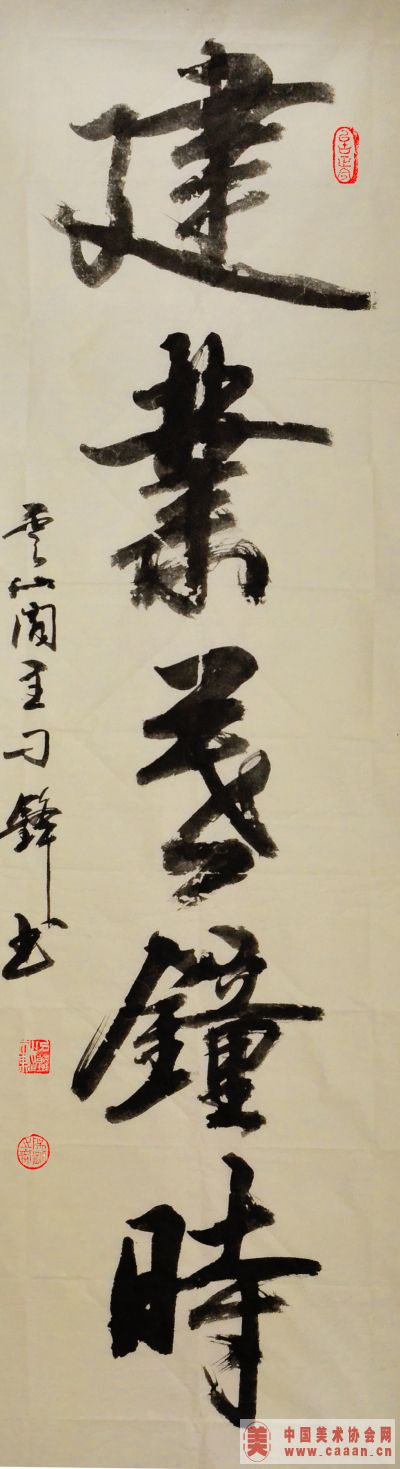 建業暮鐘時
雲山閣主刁鋒書
中国美术协会网
www.caaan.cn